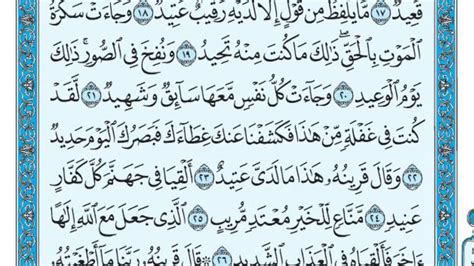 قَعِيدٌ ١٧ مَّا يَلْفِظُ مِن قَوْلٍ إِلَّا لَدَيْهِ رَقِيبٌ عَتِيدٌ ١٨ وَجَآءَتْ سَكْرَةُ
ٱلْمَوْتِ بِٱلْحَقِّ ۖ ذَٰلِكَ مَا كُنتَ مِنْهُ تَحِيدُ ١٩ وَنُفِخَ فِى ٱلصُّورِ ۚ ذَٰلِكَ
يَوْمُ ٱلْوَعِيدِ ٢٠ وَجَآءَتْ كُلُّ نَفْسٍ مَّعَهَا سَآئِقٌ وَشَهِيدٌ ٢١ لَّقَدْ
كُنتَ فِى غَفْلَةٍ مِّنْ هَٰذَا فَكَشَفْنَا عَنكَ غِطَآءَكَ فَبَصَرُكَ ٱلْيَوْمَ حَدِيدٌ
٢٢ وَقَالَ قَرِينُهُۥ هَٰذَا مَا لَدَىَّ عَتِيدٌ ٢٣ أَلْقِيَا فِى جَهَنَّمَ كُلَّ كَفَّارٍ
عَنِيدٍ ٢٤ مَّنَّاعٍ لِّلْخَيْرِ مُعْتَدٍ مُّرِيبٍ ٢٥ ٱلَّذِى جَعَلَ مَعَ ٱللَّهِ إِلَٰهًا
ءَاخَرَ فَأَلْقِيَاهُ فِى ٱلْعَذَابِ ٱلشَّدِيدِ ٢٦ ۞ قَالَ قَرِينُهُۥ رَبَّنَا مَآ أَطْغَيْتُهُۥ